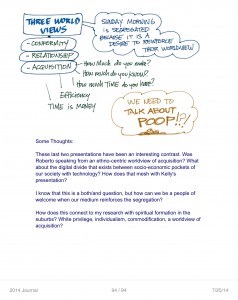 THREE WORLD
VIEWS
- CONFORMITY
- RELATIONSHIP
- ACQUISITION
SUNDAY MORNING
IS SEGREGATED
BECAUSE IT IS A
DESIRE TO REINFORCE
THEIR WORLDVIEW
How Much do you make?
How much do you know?
How much TIME do you have?
Efficiency
TIME is MONEY
WE NEED TO
TALK ABOUT
POOP!?!
Some Thoughts:
These last two presentations have been an interesting contrast. Was
Roberto speaking from an ethno-centric worldview of acquisition? What
about the digital divide that exists between socio-economic pockets of
our society with technology? How does that mesh with Kelly's
presentation?
I know that this is a both/and question, but how can we be a people of
welcome when our medium reinforces the segregation?
How does this connect to my research with spiritual formation in the
suburbs? White privilege, individualism, commodification, a worldview of
acquisition?
2014 Journal
94 / 94
7/25/14